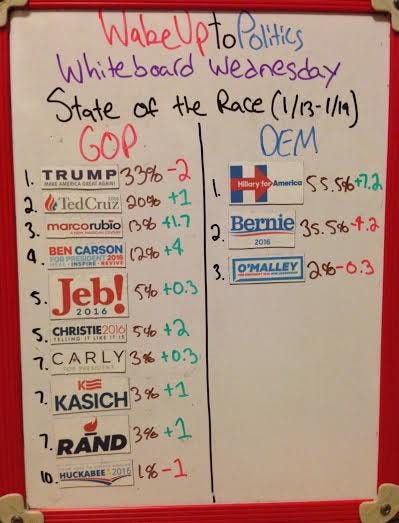 WakeUp to Politics
Whiteboard Wednesday
State of the Race (1/13-1/19)
GOP
1. TRUMP 33% -2
MAKE AMERICA GREAT AGAIN!
2. Ted Cruz 20% +1
3. marcorubio 13% +1.7
A NEW AMERICAN CENTURY
4. BEN CARSON 12% +4
FOR PRESIDENT 2016
HEAL • INSPIRE • REVIVE
5. Jeb! 5% +0.3
2016
5. CHRISTIE 2016 5% +2
TELLING IT LIKE IT IS
7. CARLY 3% +0.3
FOR PRESIDENT
7. KASICH 3% +1
7. RAND 3% +1
10. HUCKABEE 2016 1% -1
DEM
1. Hillary for America 55.5% +7.2
2. Bernie 35.5% -4.2
2016
3. O'MALLEY 2% -0.3